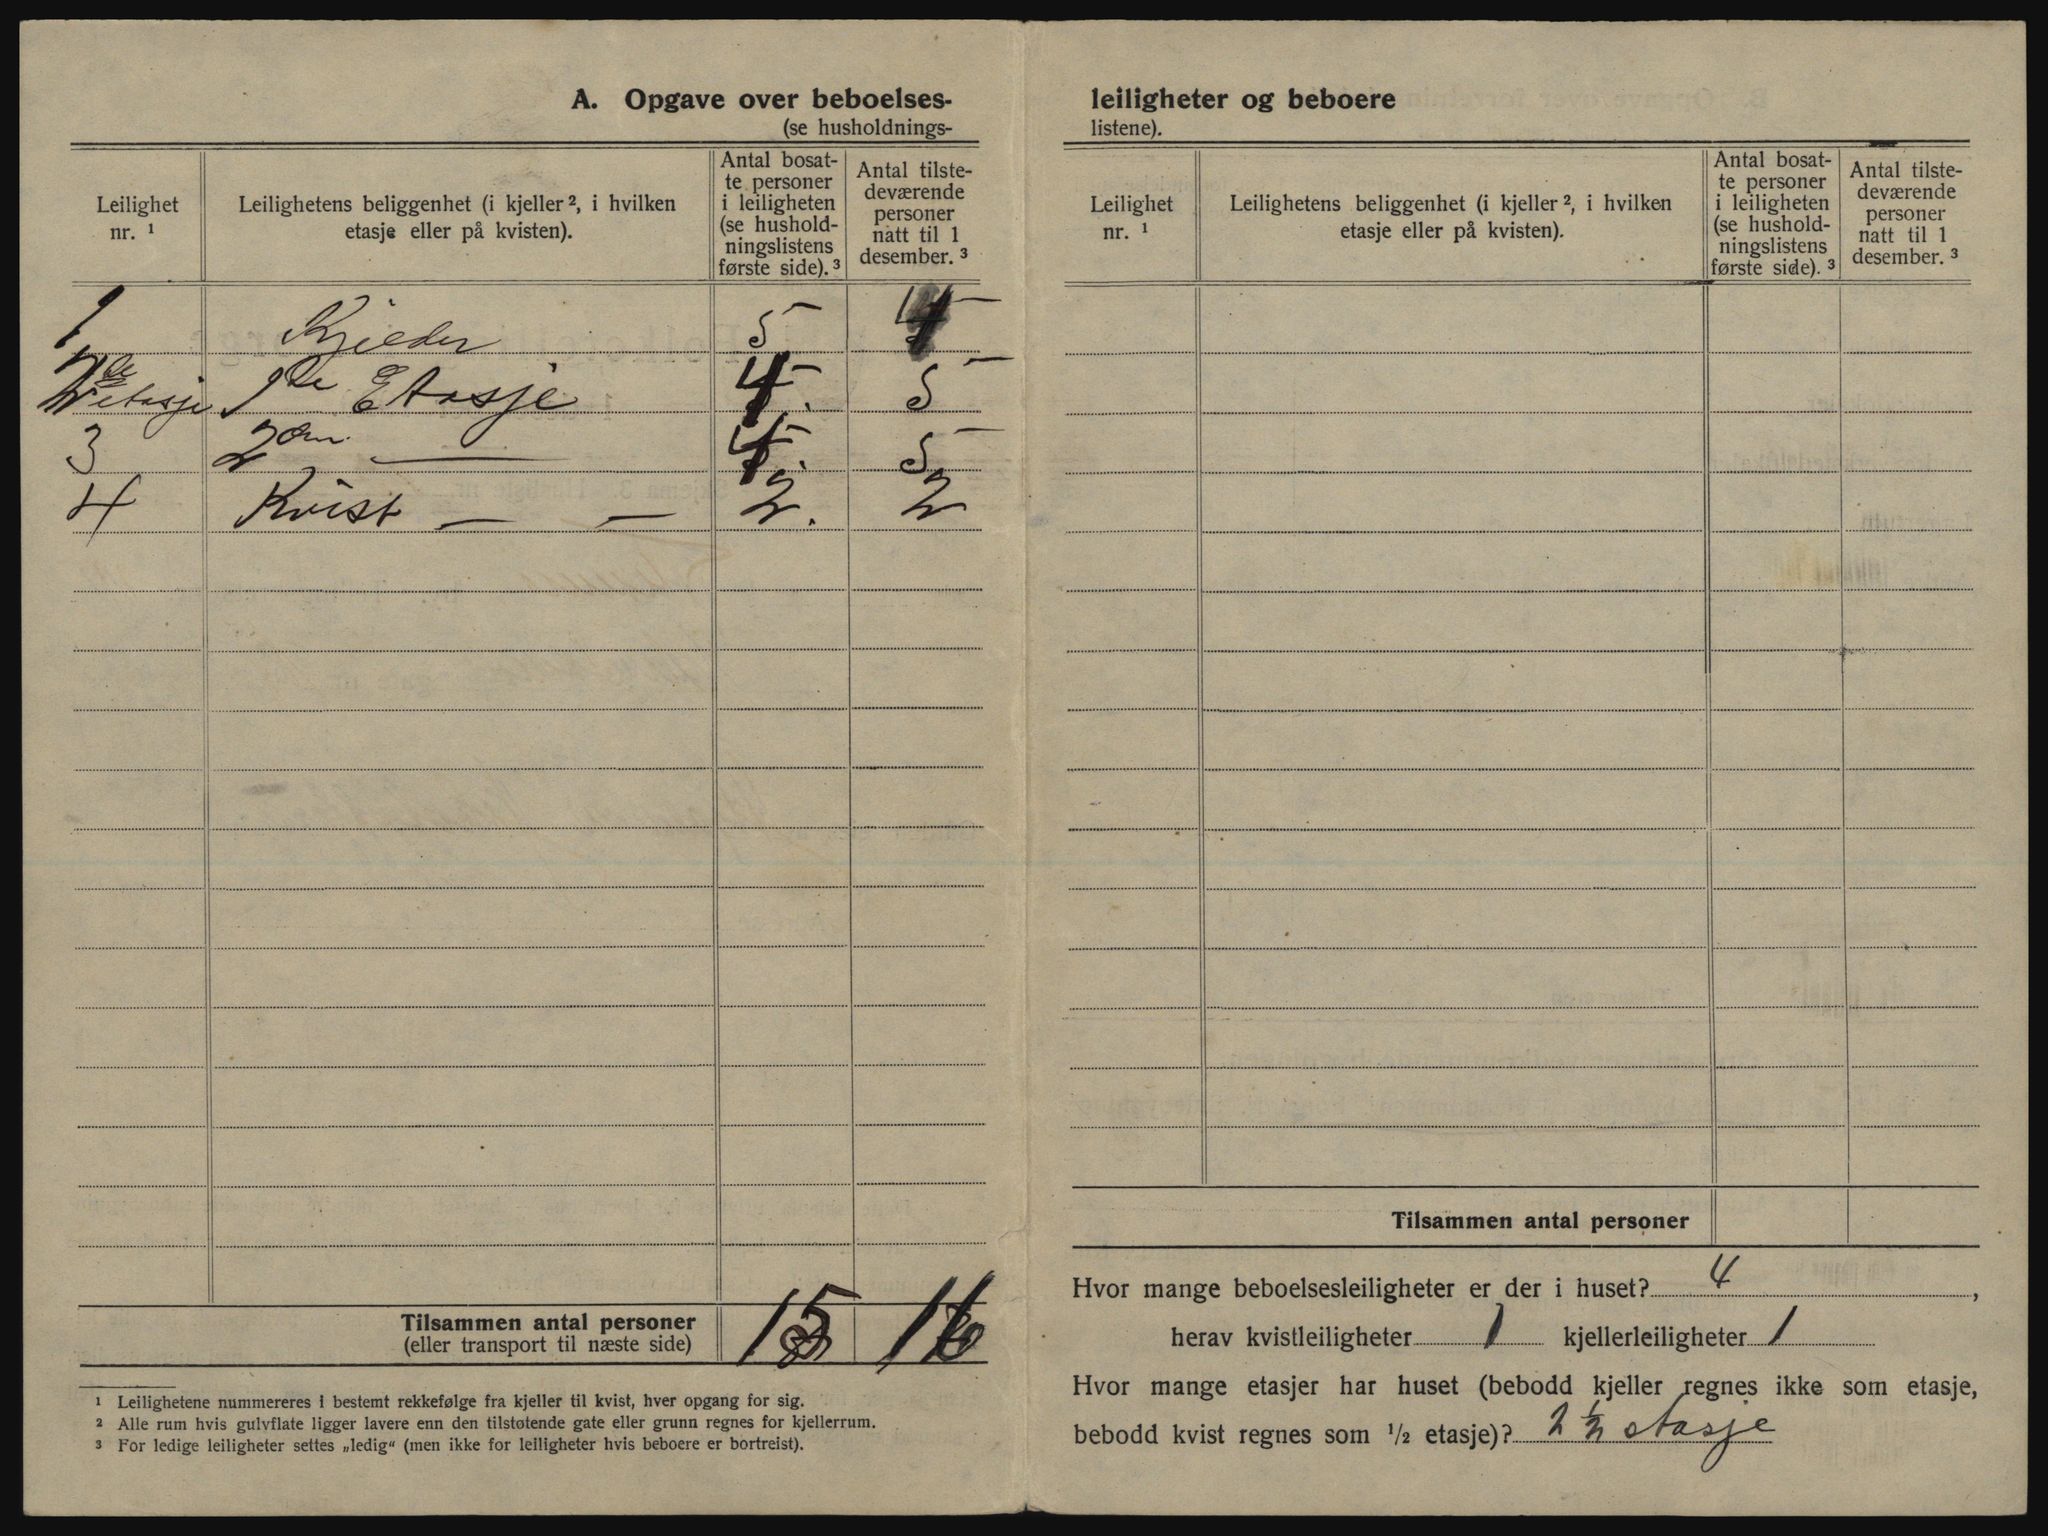 A. Opgave over beboelses-
(se husholdnings-
Leilighet nr. ¹
Leilighetens beliggenhet (i kjeller ², i hvilken etasje eller på kvisten).
Antal bosatte personer i leiligheten (se husholdningslistens første side). ³
Antal tilstedeværende personer natt til 1 desember. ³
1 Kjelder 5 4
2 etasje 1ste Etasje 4 5
3 2den — 4 5
4 Kvist — — 2. 2
Tilsammen antal personer 15 16
(eller transport til næste side)
¹ Leilighetene nummereres i bestemt rekkefølge fra kjeller til kvist, hver opgang for sig.
² Alle rum hvis gulvflate ligger lavere enn den tilstøtende gate eller grunn regnes for kjellerrum.
³ For ledige leiligheter settes „ledig“ (men ikke for leiligheter hvis beboere er bortreist).
leiligheter og beboere
listene).
Leilighet nr. ¹
Leilighetens beliggenhet (i kjeller ², i hvilken etasje eller på kvisten).
Antal bosatte personer i leiligheten (se husholdningslistens første side). ³
Antal tilstedeværende personer natt til 1 desember. ³
Tilsammen antal personer
Hvor mange beboelsesleiligheter er der i huset? 4,
herav kvistleiligheter 1 kjellerleiligheter 1
Hvor mange etasjer har huset (bebodd kjeller regnes ikke som etasje,
bebodd kvist regnes som ½ etasje)? 2 ½ etasje